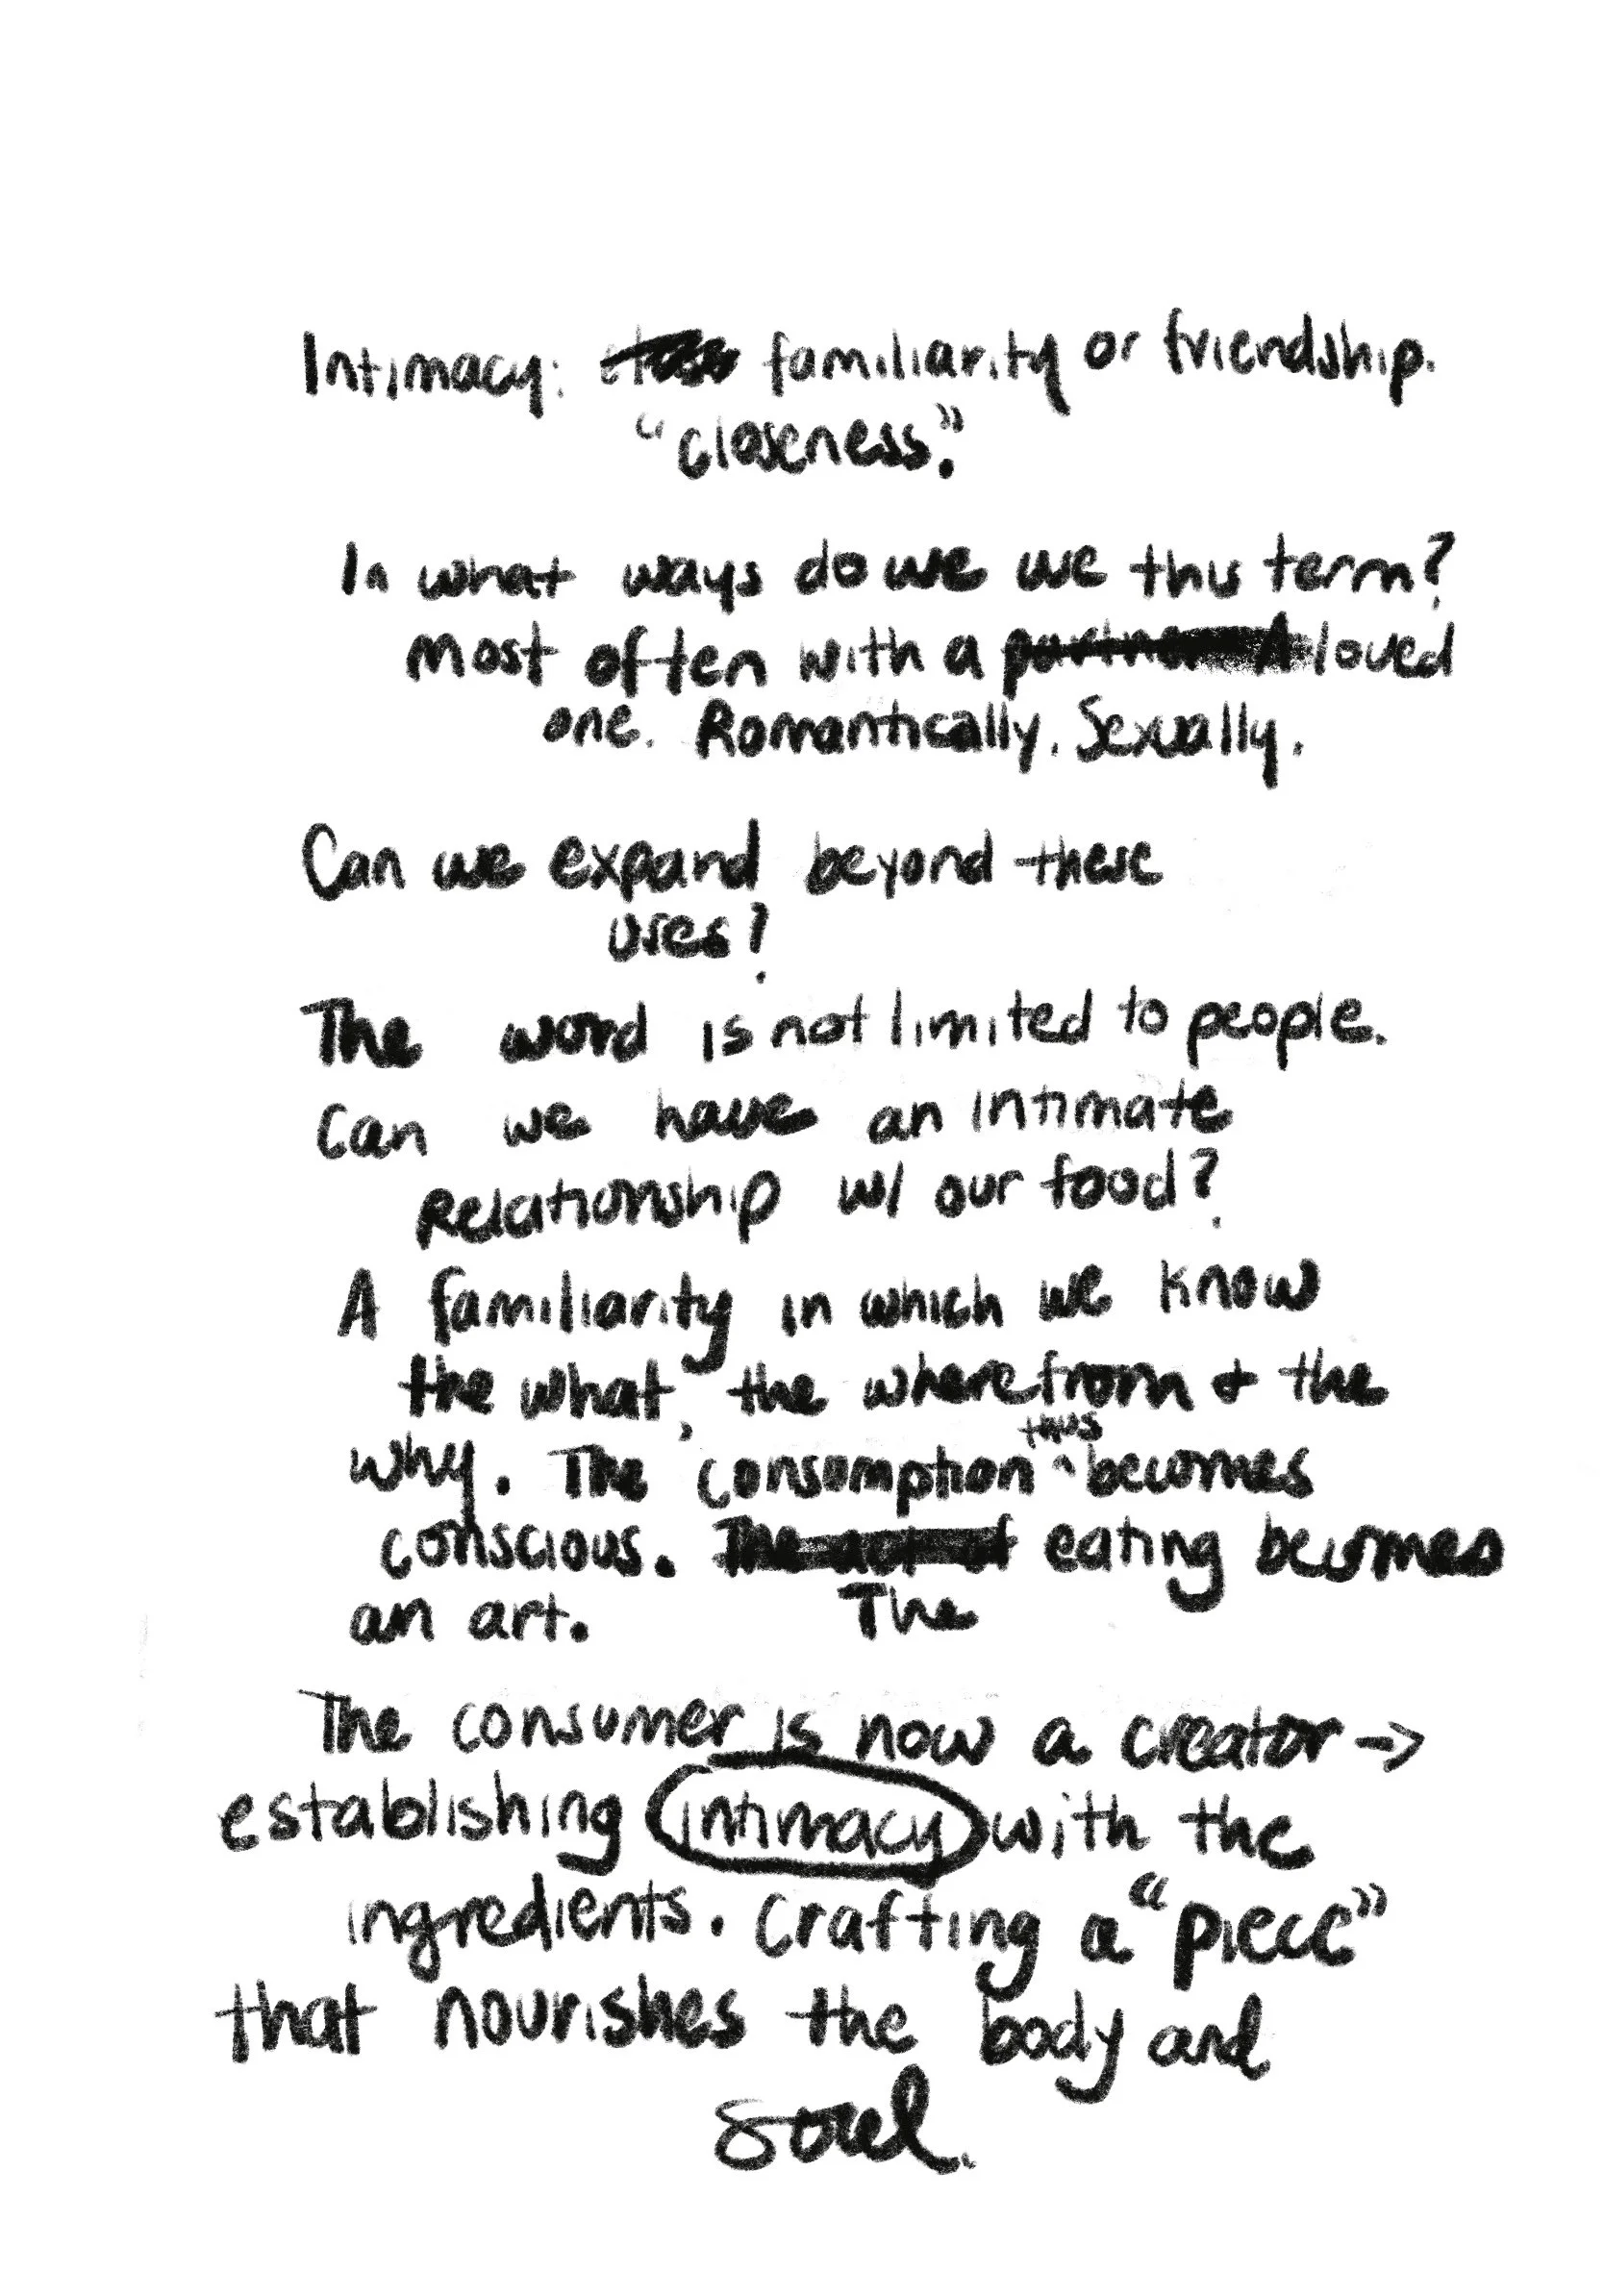 Intimacy: familiarity or friendship.
"closeness."
In what ways do we use this term?
Most often with a partner A loved
one. Romantically. Sexually.
Can we expand beyond these
uses?
The word is not limited to people.
Can we have an intimate
Relationship w/ our food?
A familiarity in which we know
the what, the where from + the
why. The consumption thus becomes
conscious. The act of eating becomes
an art. The
The consumer is now a creator →
establishing intimacy with the
ingredients. Crafting a "piece"
that nourishes the body and
soul.